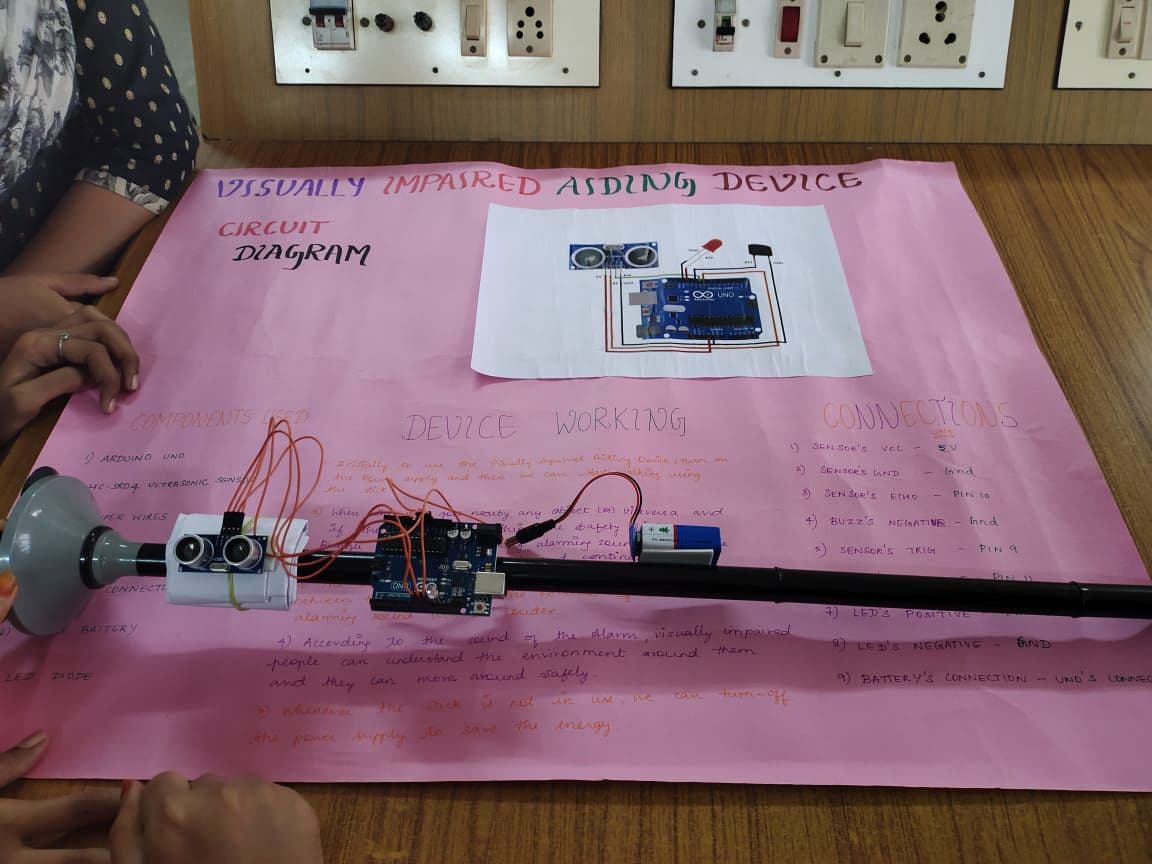 VISUALLY IMPAIRED AIDING DEVICE
CIRCUIT
DIAGRAM
UNO
COMPONENTS USED
1) ARDUINO UNO
HC-SR04 ULTRASONIC SENSOR
WIRES
BATTERY
LED DIODE
DEVICE WORKING
Initially to use the Visually impaired Aiding Device, turn on
the Power supply and then we can start walking using
the stick
nearby any object (or) viversa and
safety
alarming
alarming sound louder.
4) According to the sound of the Alarm, visually impaired
people can understand the environment around them
and they can move around safely.
5) Whenever the stick is not in use, we can turn-off
the power supply to save the energy.
CONNECTIONS
1) SENSOR'S VCC - 5V
2) SENSOR'S GND - Gnd
3) SENSOR'S ECHO - PIN 10
4) BUZZ'S NEGATIVE - Gnd
5) SENSOR'S TRIG - PIN 9
PIN 11
7) LED'S POSITIVE
8) LED'S NEGATIVE - GND
9) BATTERY'S CONNECTION - UNO'S
UNO